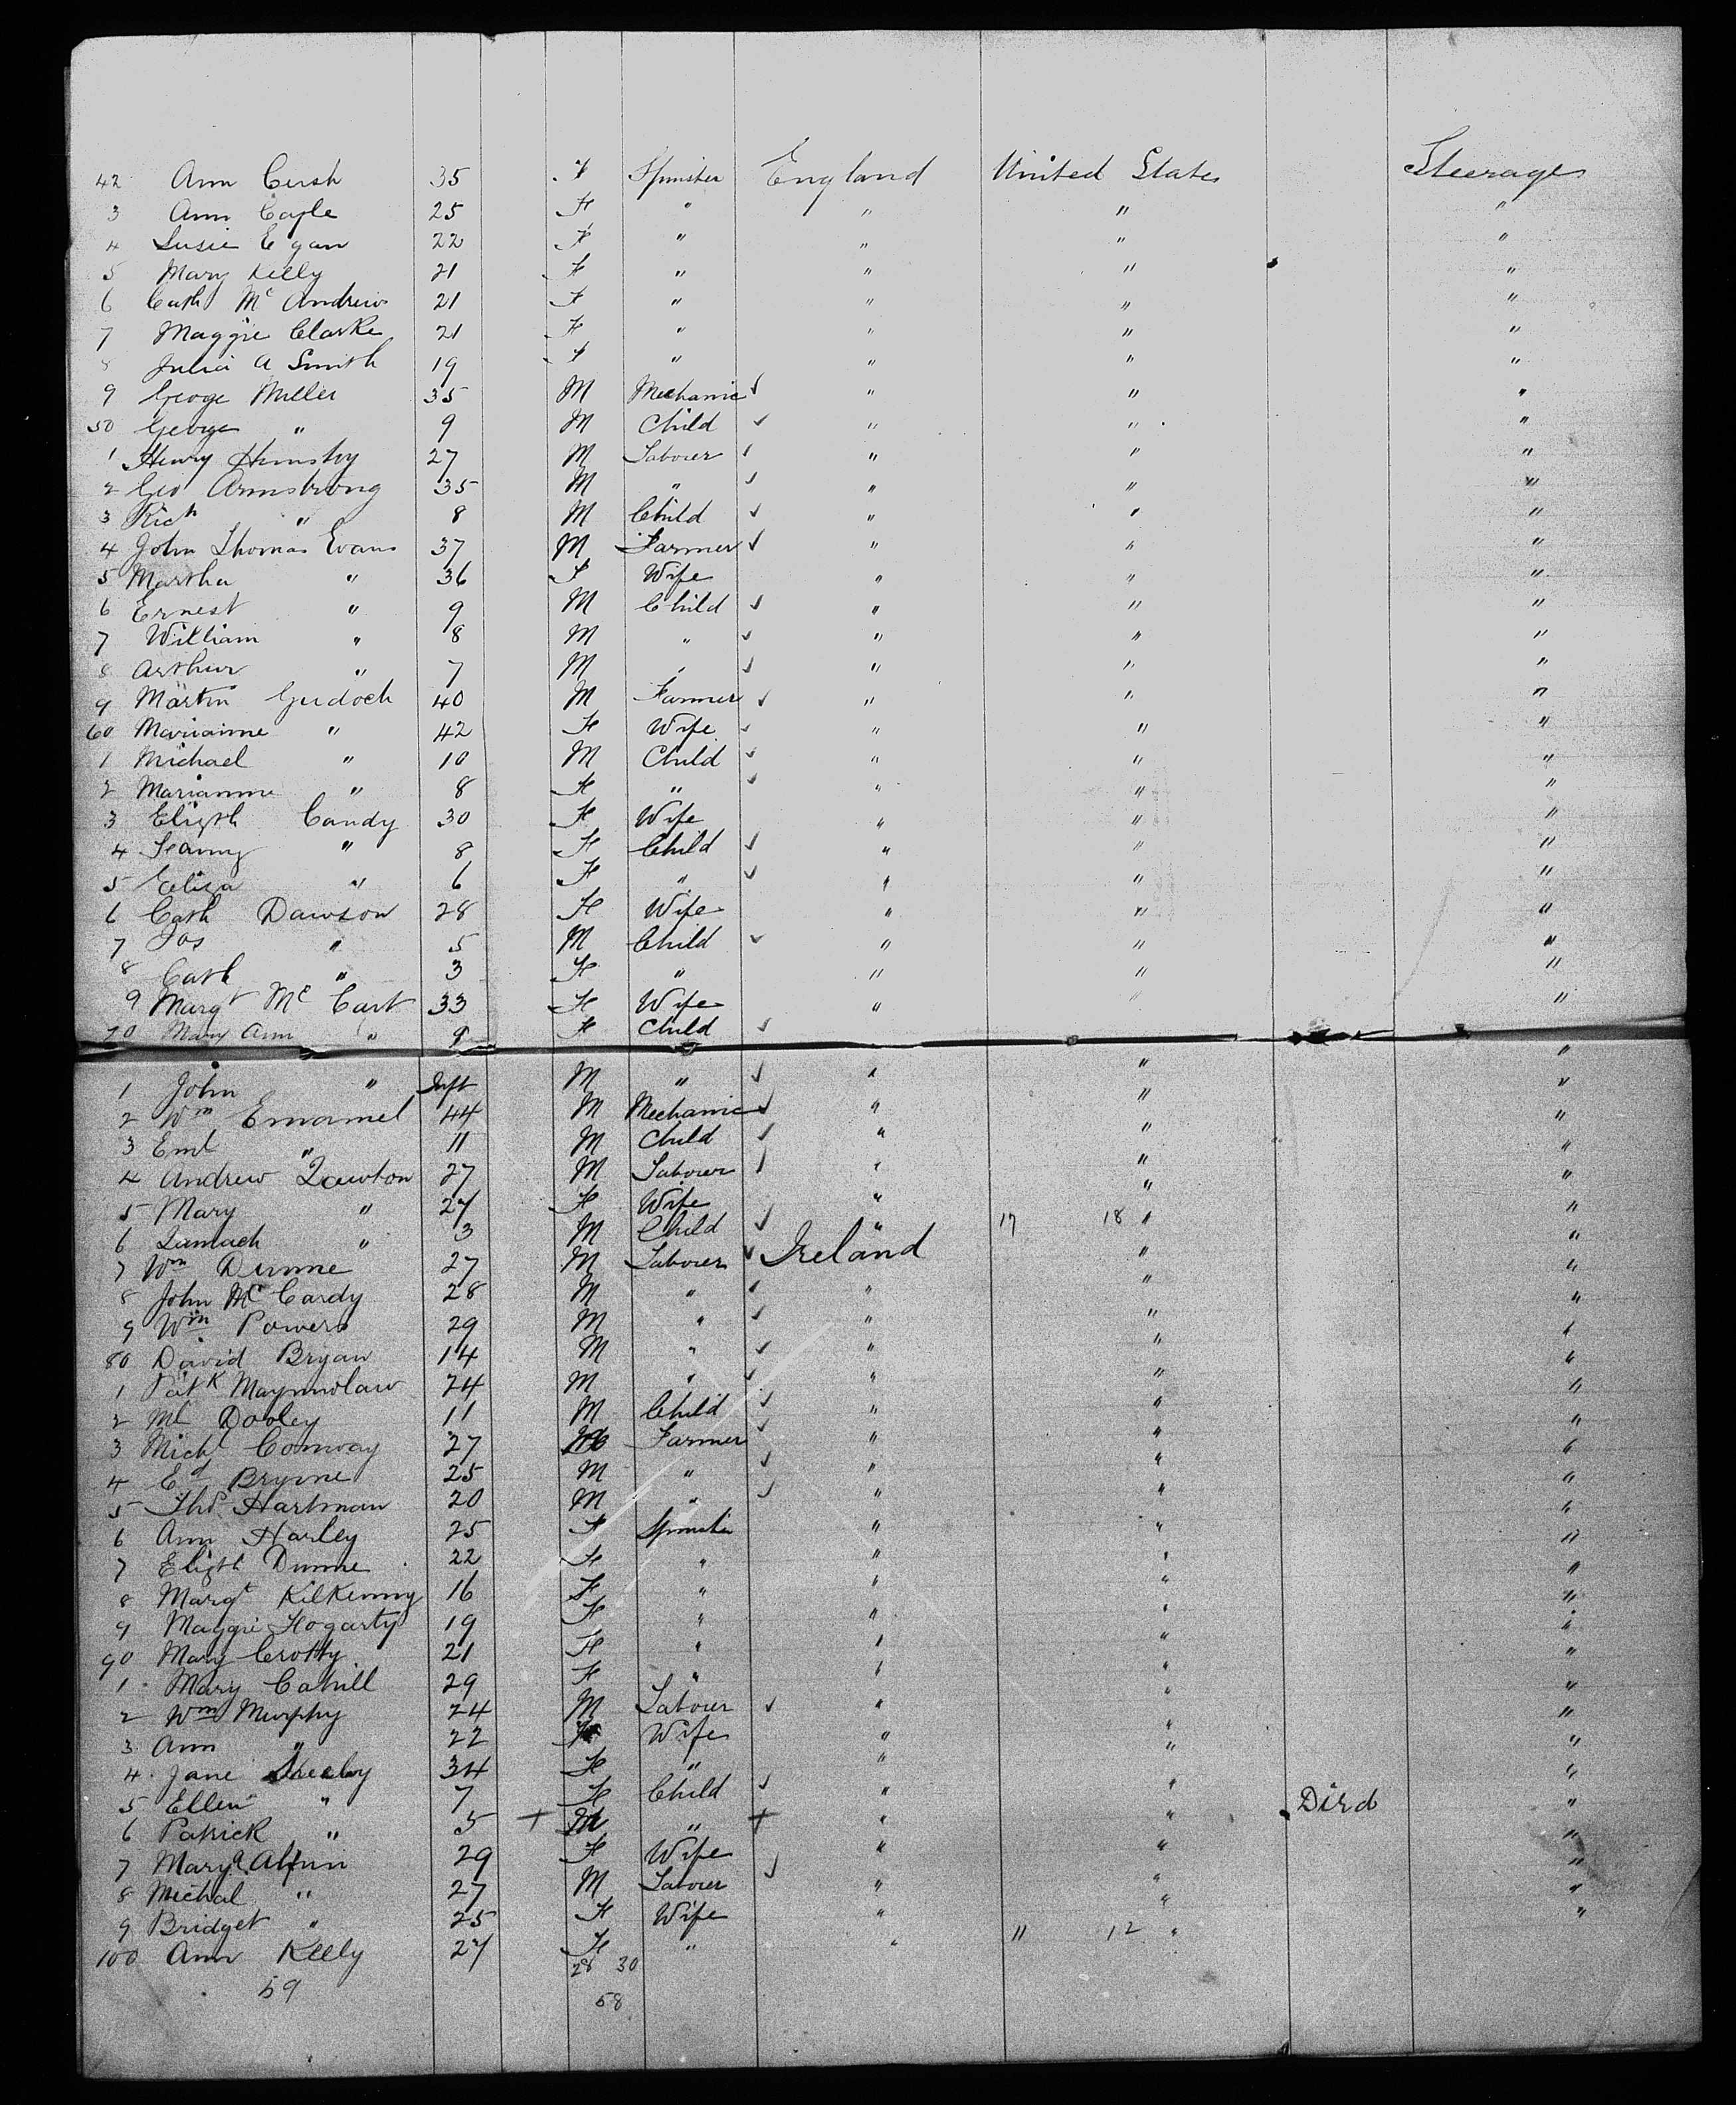 42 Ann Cush 35 F Spinster England United States Steerage
3 Ann Coyle 25 F " " " "
4 Susie Egan 22 F " " " "
5 Mary Kelly 21 F " " " "
6 Cath Mc Andrew 21 F " " " "
7 Maggie Clarke 21 F " " " "
8 Julia A Smith 19 F " " " "
9 George Miller 35 M Mechanic " " "
50 George " 9 M Child " " "
1 Henry 27 M Labourer " " "
2 Geo Armstrong 35 M " " " "
3 Rich " 8 M Child " " "
4 John Thomas Evans 37 M Farmer " " "
5 Martha " 36 F Wife " " "
6 Ernest " 9 M Child " " "
7 William " 8 M " " " "
8 Arthur " 7 M " " " "
9 Martin 40 M Farmer " " "
60 Marianne " 42 F Wife " " "
1 Michael " 10 M Child " " "
2 Marianne " 8 F " " " "
3 Elizth Candy 30 F Wife " " "
4 " 8 F Child " " "
5 Eliza " 6 F " " " "
6 Cath Dawson 28 F Wife " " "
7 Jos " 5 M Child " " "
8 Cath " 3 F " " " "
9 Margt Mc Cart 33 F Wife " " "
70 Mary Ann " 9 F Child
1 John " Inft M " " " "
2 Wm Emamel 44 M Mechanic " " "
3 Eml " 11 M Child " " "
4 Andrew Lawton 27 M Labourer " " "
5 Mary " 27 F Wife " " "
6 " 3 M Child " 17 18 " "
7 Wm Dunne 27 M Labourer Ireland " "
8 John Mc Cardy 28 M " " " "
9 Wm Powers 29 M " " " "
80 David Bryan 14 M " " " "
1 Patk 24 M " " " "
2 Ml Dooley 11 M Child " " "
3 Michl Conway 27 M Farmer " " "
4 Ed Bryrne 25 M " " " "
5 Thos Hartman 20 M " " " "
6 Ann Harley 25 F Spinster " " "
7 Elizth Dunne 22 F " " " "
8 Margt Kilkenny 16 F " " " "
9 Maggie Hogarty 19 F " " " "
90 Mary Crotty 21 F " " " "
1 Mary Cahill 29 F " " " "
2 Wm Murphy 24 M Labourer " " "
3 Ann " 22 F Wife " " "
4 Jane 34 F " " " "
5 Ellen " 7 F Child " " "
6 Patrick " 5 + M " + " " Died "
7 Mary A 29 F Wife " " "
8 Michal " 27 M Labourer " " "
9 Bridget " 25 F Wife " " "
100 Ann Kelly 27 F " " 11 12 " "
59 28 30
58